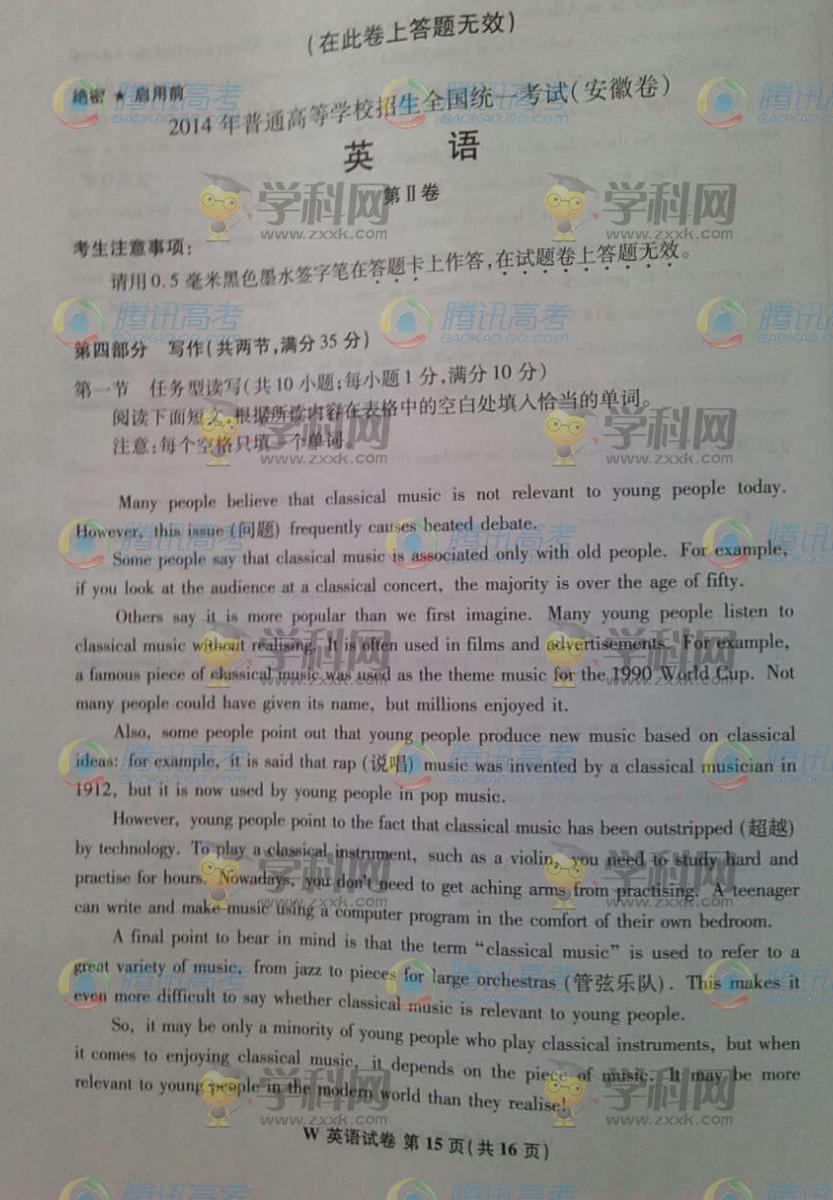 (在此卷上答题无效)
绝密 ★ 启用前
2014 年普通高等学校招生全国统一考试(安徽卷)
英 语
第Ⅱ卷
考生注意事项:
请用0.5 毫米黑色墨水签字笔在答题卡上作答,在试题卷上答题无效。
第四部分 写作(共两节,满分35 分)
第一节 任务型读写(共10 小题;每小题1 分,满分10 分)
阅读下面短文,根据所读内容在表格中的空白处填入恰当的单词。
注意:每个空格只填一个单词。
Many people believe that classical music is not relevant to young people today.
However, this issue (问题) frequently causes heated debate.
Some people say that classical music is associated only with old people. For example,
if you look at the audience at a classical concert, the majority is over the age of fifty.
Others say it is more popular than we first imagine. Many young people listen to
classical music without realising. It is often used in films and advertisements. For example,
a famous piece of classical music was used as the theme music for the 1990 World Cup. Not
many people could have given its name, but millions enjoyed it.
Also, some people point out that young people produce new music based on classical
ideas: for example, it is said that rap (说唱) music was invented by a classical musician in
1912, but it is now used by young people in pop music.
However, young people point to the fact that classical music has been outstripped (超越)
by technology. To play a classical instrument, such as a violin, you need to study hard and
practise for hours. Nowadays, you don't need to get aching arms from practising. A teenager
can write and make music using a computer program in the comfort of their own bedroom.
A final point to bear in mind is that the term "classical music" is used to refer to a
great variety of music, from jazz to pieces for large orchestras (管弦乐队). This makes it
even more difficult to say whether classical music is relevant to young people.
So, it may be only a minority of young people who play classical instruments, but when
it comes to enjoying classical music, it depends on the piece of music. It may be more
relevant to young people in the modern world than they realise!
W 英语试卷 第 15 页(共 16 页)
腾讯高考
GAOKAO.QQ.COM
学科网
www.zxxk.com